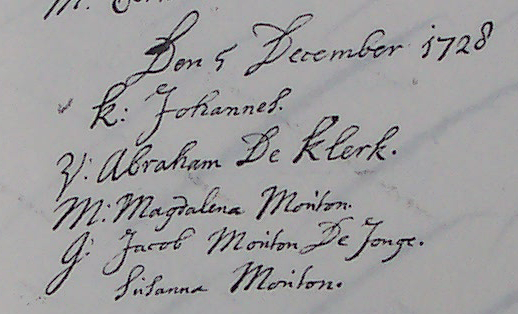 Den 5 December 1728
k: Johannes.
V: Abraham De klerk.
M: Magdalena Moúton.
G: Jacob Moúton De Jonge.
Súsanna Moúton.